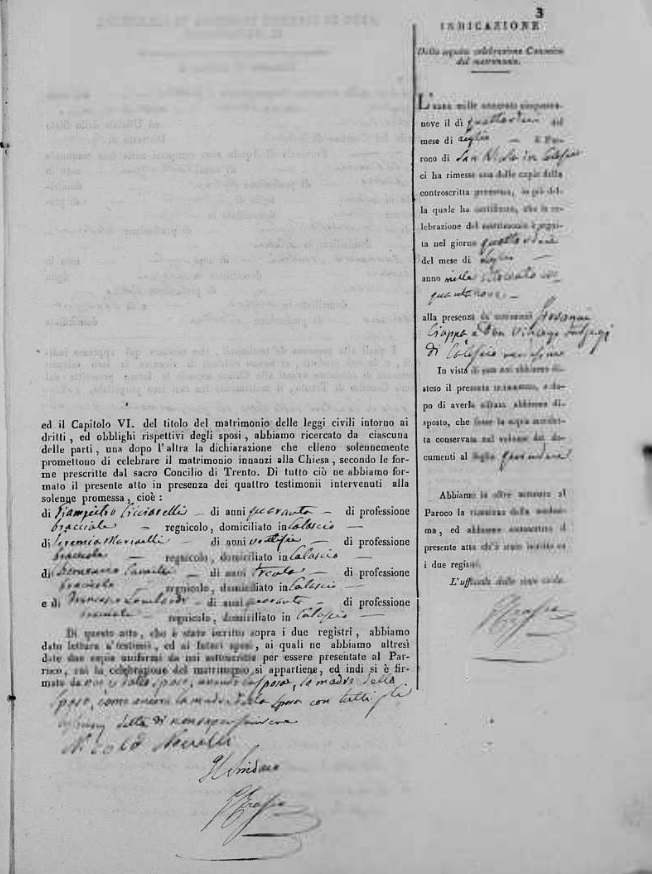 3
INDICAZIONE
Della seguita celebrazione Canonica
del matrimonio.
L'anno mille ottocento cinquanta-
nove il dì quattordici del
mese di Luglio — il Par-
roco di San Nicola in Calascio
ci ha rimesso una delle copie della
controscritta promessa, in piè del-
la quale ha certificato, che la ce-
lebrazione del matrimonio è segui-
ta nel giorno quattordici
del mese di Luglio —
anno mille ottocento cin
quantanove —
alla presenza de' testimonii Giovanni
Ciappa e Don Vincenzo
di Calascio
In vista di
steso il presente
po di averla cifrata abbiamo di-
sposto, che fosse la copia anzidet-
ta conservata nel volume dei do-
cumenti al foglio
Abbiamo in oltre accusato al
Paroco la ricezione della medesi-
ma, ed abbiamo sottoscritto il
presente atto ch'è stato iscritto su
i due registri.
L'uffiziale dello stato civile.
ed il Capitolo VI. del titolo del matrimonio delle leggi civili intorno ai
dritti, ed obblighi rispettivi degli sposi, abbiamo ricercato da ciascuna
delle parti, una dopo l'altra la dichiarazione che elleno solennemente
promettono di celebrare il matrimonio innanzi alla Chiesa, secondo le for-
me prescritte dal sacro Concilio di Trento. Di tutto ciò ne abbiamo for-
mato il presente atto in presenza dei quattro testimonii intervenuti alla
solenge promessa, cioè :
di Giampietro Cicciarelli — di anni quaranta — di professione
bracciale — regnicolo, domiciliato in Calascio —
di Geremia — di anni — di professione
bracciale — regnicolo, domiciliato in Calascio —
di Domenico — di anni trenta — di professione
bracciale — regnicolo, domiciliato in Calascio
e di Francesco Lombardi — di anni quaranta — di professione
bracciale — regnicolo, domiciliato in Calascio —
Di questo atto, che è stato iscritto sopra i due registri, abbiamo
dato lettura a'testimoni, ed ai futuri sposi, ai quali ne abbiamo altresì
date due copie uniformi da noi sottoscritte per essere presentate al Par-
roco, cui la celebrazione del matrimonio si appartiene, ed indi si è fir-
mato da noi e dallo sposo, avendo la sposa, la madre dello
sposo, come ancora la madre della sposa con tutti gli
detto di non saper scrivere
Nicola
Il Sindaco